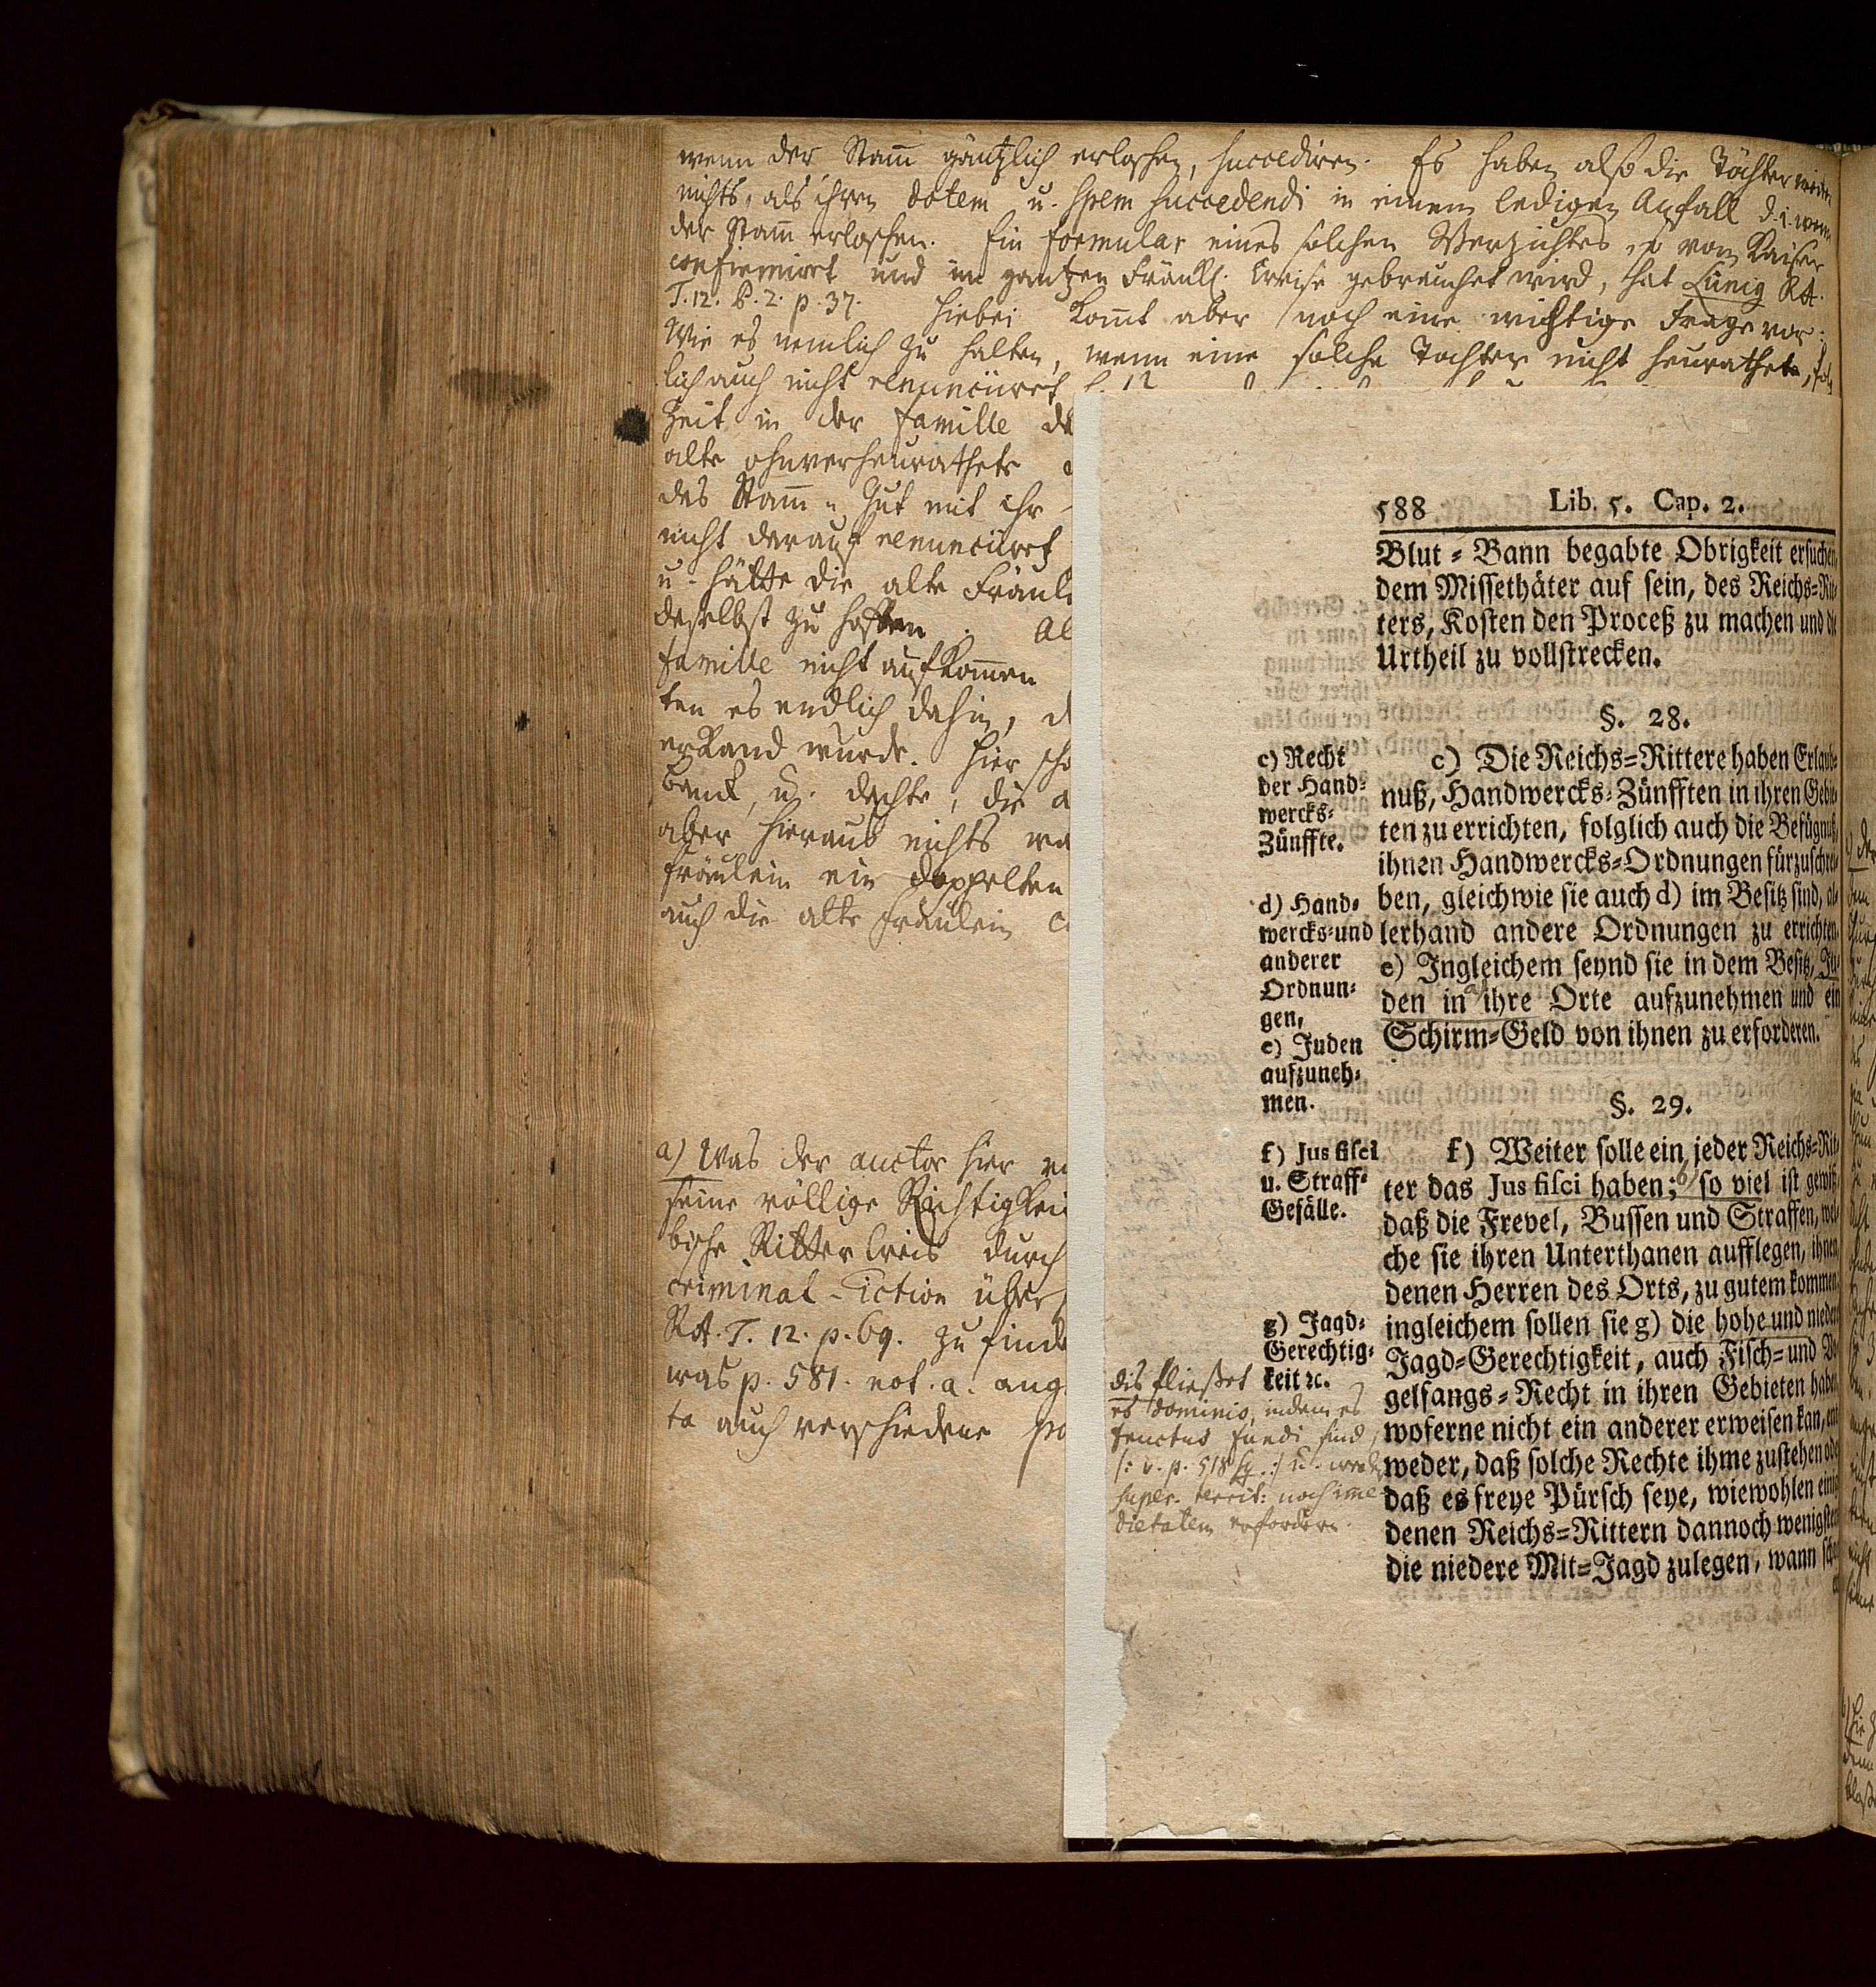 wenn der Stam̄ gäntzlich erloschen, succediren. Es haben also die Töchter weiter
nichts, als ihren dotem u. spem succedendi in einem ledigen Anfall d. i. wenn
der Stam̄ erloschen. Ein formular eines solchen Verzichtes, so vom Kaiser
confirmirt und im gantzen Fränkl. Creise gebrauchet wird, hat Lünig RA.
T. 12. P. 2. p. 37. Hiebei kom̄t aber noch eine wichtige Frage vor:
Wie es nemlich zu halten, wenn eine solche Tochter nicht heurathet,
lich auch nicht renunciiret
Zeit in der famille
alte ohnverheurathete
das Stam̄-Gut mit ihr
nicht darauf renunciiret
u. hätte die alte Fräul
daselbst zu hoffen. Al
famille nicht aufkom̄en
ten es endlich dahin, d
erkand wurde. Hier
banck, u. dachte, die a
aber hieraus nichts
fräulein ein doppelten
auch die alte Fräulein
a) Was der auctor hier
seine völlige Richtigkei
bische Ritter Creis durch
criminal-iction über
RA. T. 12. p. 69. zu find
was p. 581. not. a. ang
te auch verschiedene
588 Lib. 5. Cap. 2.
Blut-Bann begabte Obrigkeit ersuchen,
dem Missethäter auf sein, des Reichs-Rit-
ters, Kosten den Proceß zu machen und die
Urtheil zu vollstrecken.
§. 28.
c) Recht
der Hand-
wercks-
Zünffte.
c) Die Reichs-Rittere haben Erlaub-
nuß, Handwercks-Zünfften in ihren Gebie-
ten zu errichten, folglich auch die Befügnuß,
ihnen Handwercks-Ordnungen fürzuschrei-
d) Hand-
wercks- und
anderer
Ordnun-
gen,
ben, gleichwie sie auch d) im Besitz sind, al-
lerhand andere Ordnungen zu errichten.
e) Juden
aufzuneh-
men.
e) Ingleichem seynd sie in dem Besitz, Ju-
den in a) ihre Orte aufzunehmen und ein
Schirm-Geld von ihnen zu erforderen.
§. 29.
f) Jus fisci
u. Straff-
Gefälle.
f) Weiter solle ein jeder Reichs-Rit-
ter das Jus fisci haben; b) so viel ist gewiß,
daß die Frevel, Bussen und Straffen, wel-
che sie ihren Unterthanen aufflegen, ihnen
denen Herren des Orts, zu gutem kommen.
g) Jagd-
Gerechtig-
keit ꝛc.
ingleichem sollen sie g) die hohe und niedere
Jagd-Gerechtigkeit, auch Fisch- und Vo-
gelfangs-Recht in ihren Gebieten haben,
woferne nicht ein anderer erweisen kan, ent-
weder, daß solche Rechte ihme zustehen oder
daß es freye Pürsch seye, wiewohlen einige
denen Reichs-Rittern dannoch wenigstens
die niedere Mit-Jagd zulegen, wann
dis fließet
ex dominio, indem es
fructus fundi sind,
/: v. p. 518 sq. :/ u. weder
super. territ: noch im̄e-
dietatem erfordern.